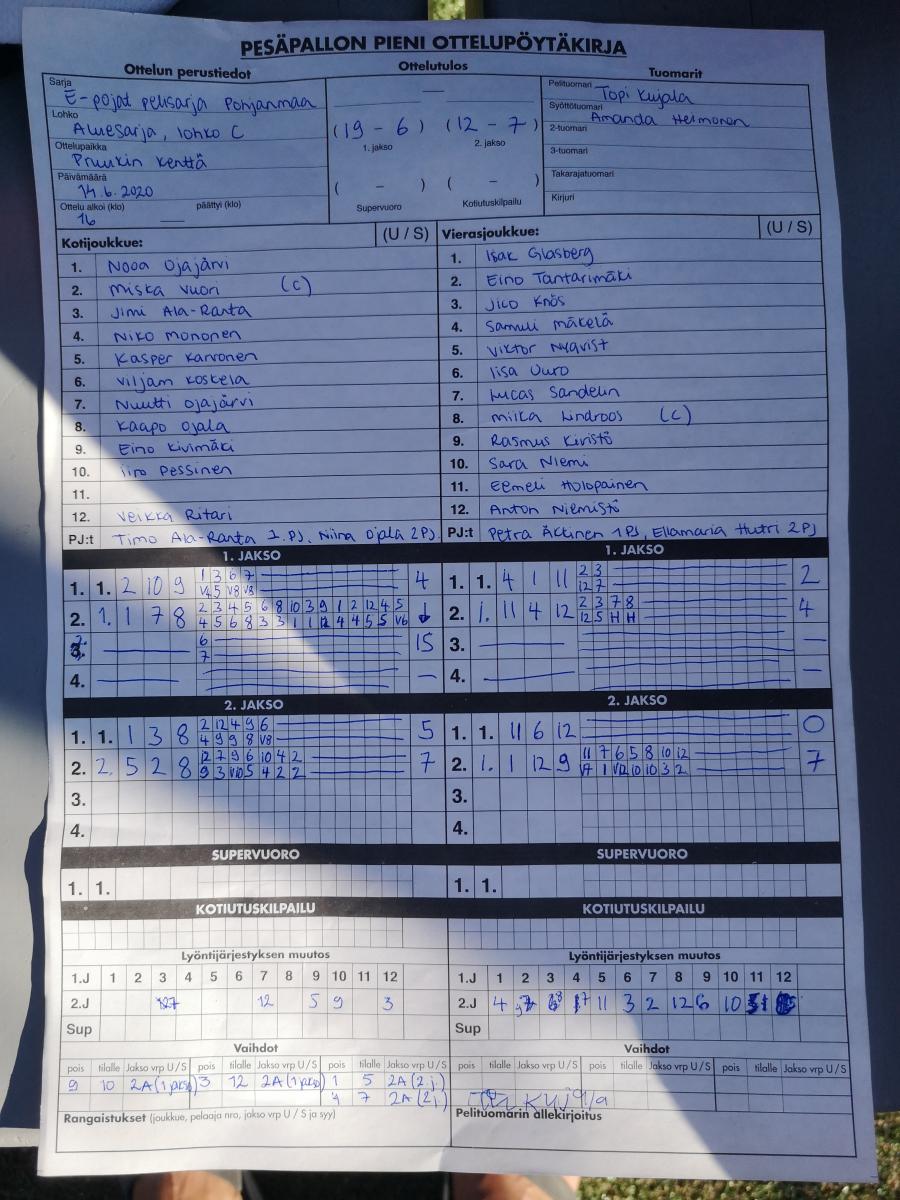 PESÄPALLON PIENI OTTELUPÖYTÄKIRJA
Ottelun perustiedot
Ottelutulos
Tuomarit
Sarja
E-pojat pelisarja Pohjanmaa
Lohko
Aluesarja, lohko C
Ottelupaikka
Pruukin kenttä
Päivämäärä
14.6.2020
Ottelu alkoi (klo) päättyi (klo)
16 —
—
(19 - 6) (12 - 7)
1. jakso 2. jakso
( - ) ( - )
Supervuoro Kotiutuskilpailu
Pelituomari Topi Kujala
Syöttötuomari Amanda Helmonen
2-tuomari
3-tuomari
Takarajatuomari
Kirjuri
Kotijoukkue: (U / S)
1. Nooa Ojajärvi
2. Miska Vuori (C)
3. Jimi Ala-Ranta
4. Niko Mononen
5. Kasper Karvonen
6. Viljam Koskela
7. Nuutti Ojajärvi
8. Kaapo Ojala
9. Eino Kivimäki
10. Iiro Pessinen
11.
12. Veikka Ritari
PJ:t Timo Ala-Ranta 1.PJ, Niina Ojala 2PJ
Vierasjoukkue: (U / S)
1. Isak Glasberg
2. Eino Tantarimäki
3. Jico Knös
4. Samuli Mäkelä
5. Viktor Nyqvist
6. Iisa Uuro
7. Lucas Sandelin
8. Milka Lindroos (C)
9. Rasmus Kivistö
10. Sara Niemi
11. Eemeli Holopainen
12. Anton Niemistö
PJ:t Petra Äckinen 1PJ, Ellamaria Hutri 2PJ
1. JAKSO
1. 1. 2 10 9
1 3 6 7
V4 5 V8 V8
4
2. 1. 1 7 8
2 3 4 5 6 8 10 3 9 1 2 12 4 5
4 5 6 8 3 3 1 1 12 4 4 5 5 V6
↓
—
6
7
15
4. — —
1. JAKSO
1. 1. 4 1 11
2 3
12 7
2
2. 1. 11 4 12
2 3 7 8
12 5 H H
4
3. — —
4. — —
2. JAKSO
1. 1. 1 3 8
2 12 4 9 6
4 9 9 8 V8
5
2. 2. 5 2 8
12 7 9 6 10 4 2
9 3 V10 5 4 2 2
7
3.
4.
2. JAKSO
1. 1. 11 6 12 0
2. 1. 1 12 9
11 7 6 5 8 10 12
V7 1 V12 10 10 3 2
7
3.
4.
SUPERVUORO
1. 1.
SUPERVUORO
1. 1.
KOTIUTUSKILPAILU
KOTIUTUSKILPAILU
Lyöntijärjestyksen muutos
1.J 1 2 3 4 5 6 7 8 9 10 11 12
2.J 12 5 9 3
Sup
Lyöntijärjestyksen muutos
1.J 1 2 3 4 5 6 7 8 9 10 11 12
2.J 4 11 3 2 12 6 10
Sup
Vaihdot
pois tilalle Jakso vrp U / S pois tilalle Jakso vrp U / S pois tilalle Jakso vrp U / S
9 10 2A(1 jakso) 3 12 2A(1 jakso) 1 5 2A(2 j.)
4 7 2A(2 j.)
Rangaistukset (joukkue, pelaaja nro, jakso vrp U / S ja syy)
Vaihdot
pois tilalle Jakso vrp U / S pois tilalle Jakso vrp U / S pois tilalle Jakso vrp U / S
Kujala
Pelituomarin allekirjoitus